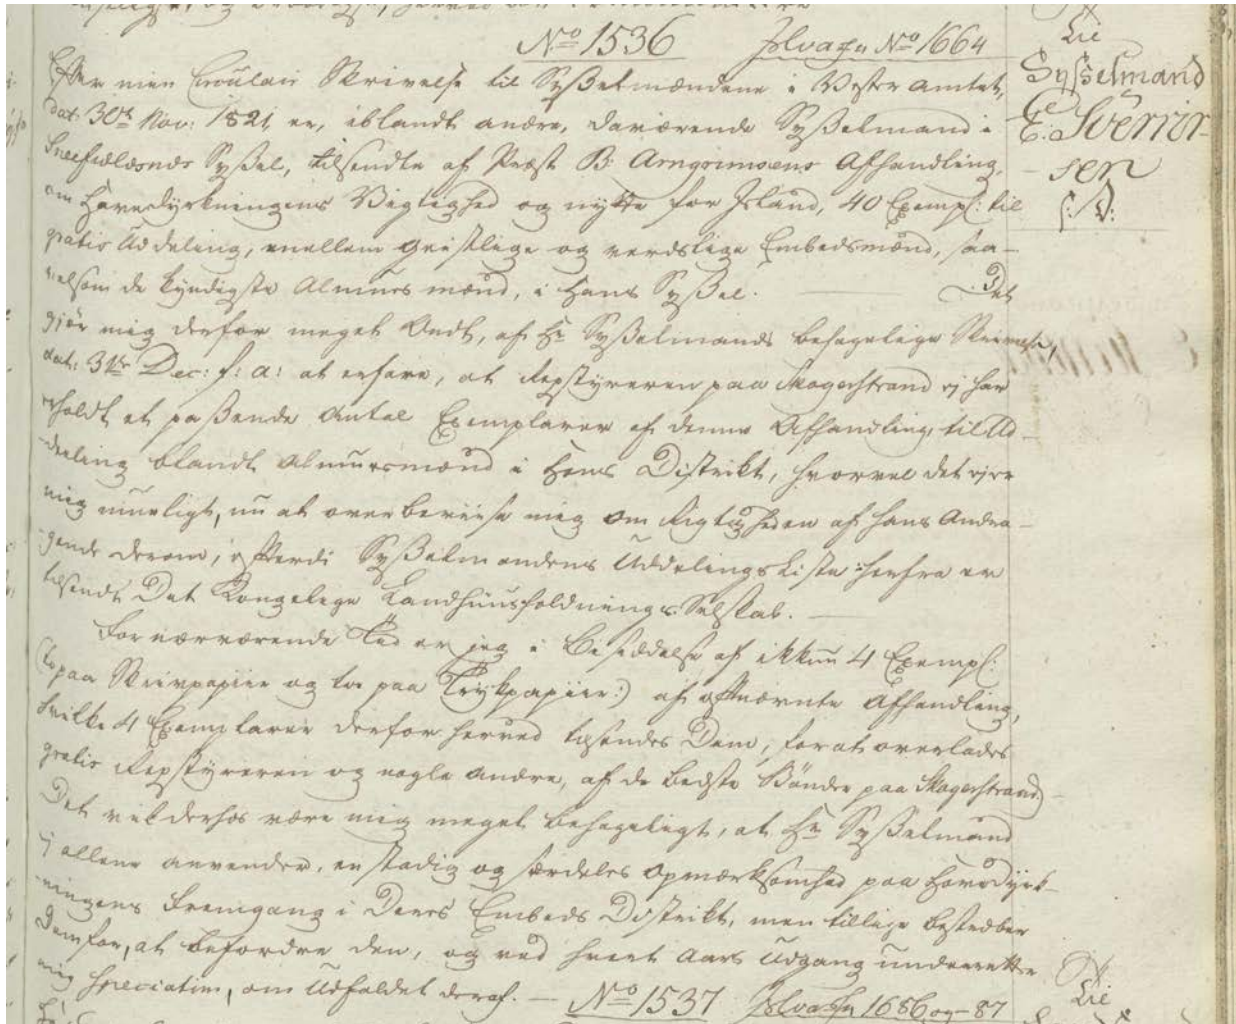 No 1536 Jslvagn No 1664
Efter min Circulair Skrivelse til Sysselmændene i Vester Amtet,
dat: 30te Nov: 1821, er, iblandt andre, daværende Sysselmand i
Sneefieldsnæs Syssel, tilsendte af Præst B: Arngrimsens Afhandling,
om Havedyrkningens Vigtighed og nytte for Jsland, 40 Exempl: til
gratis Uddeling, mellem geistlige og verdslige Embedsmænd, saa-
velsom de kyndigste Almues mænd, i Hans Syssel. Det
gjør mig derfor meget Ondt, af Hr Sysselmands behagelige Skrivelse,
dat: 31te Dec: f: a: at erfare, at Repstyreren paa Skogestrand ej har
erholdt et passende Antal Exemplarer af denne Afhandling, til Ud-
deeling blandt Almuesmænd i Hans Distrikt, hvorvel det ejer
mig umueligt, nu at overbeviise mig om Rigtigheden af hans Andra-
gende derom, efterdi Sysselmandens Uddelings Liste herfra er
tilsendt Det Kongelige Landhuusholdnings Selskab.
For nærværende Tid er jeg i Besiddelse af ikkun 4 Exempl:
(to paa Skrivpapiir og to paa Trykpapiir:) af oftnævnte Afhandling,
hvilke 4 Exemplarer derfor herved tilsendes Dem, for at overlades
gratis Repstyreren og nogle andre, af de bedste Bønder paa Skogestrand.
Det vil derhos være mig meget behageligt, at Hr Sysselmand
ej allene anvender, en stadig og særdeles Opmærksomhed paa Havedyrk-
ningens Fremgang i Deres Embeds Distrikt, men tillige bestræber
Dem for, at befordre den, og ved hvert Aars Udgang underretter
mig speciatim, om Udfaldet deraf. — No 1537 Jslvagn 1686 og -87
Lie
Sysselmand
E. Sverrir-
sen
S:
Lie